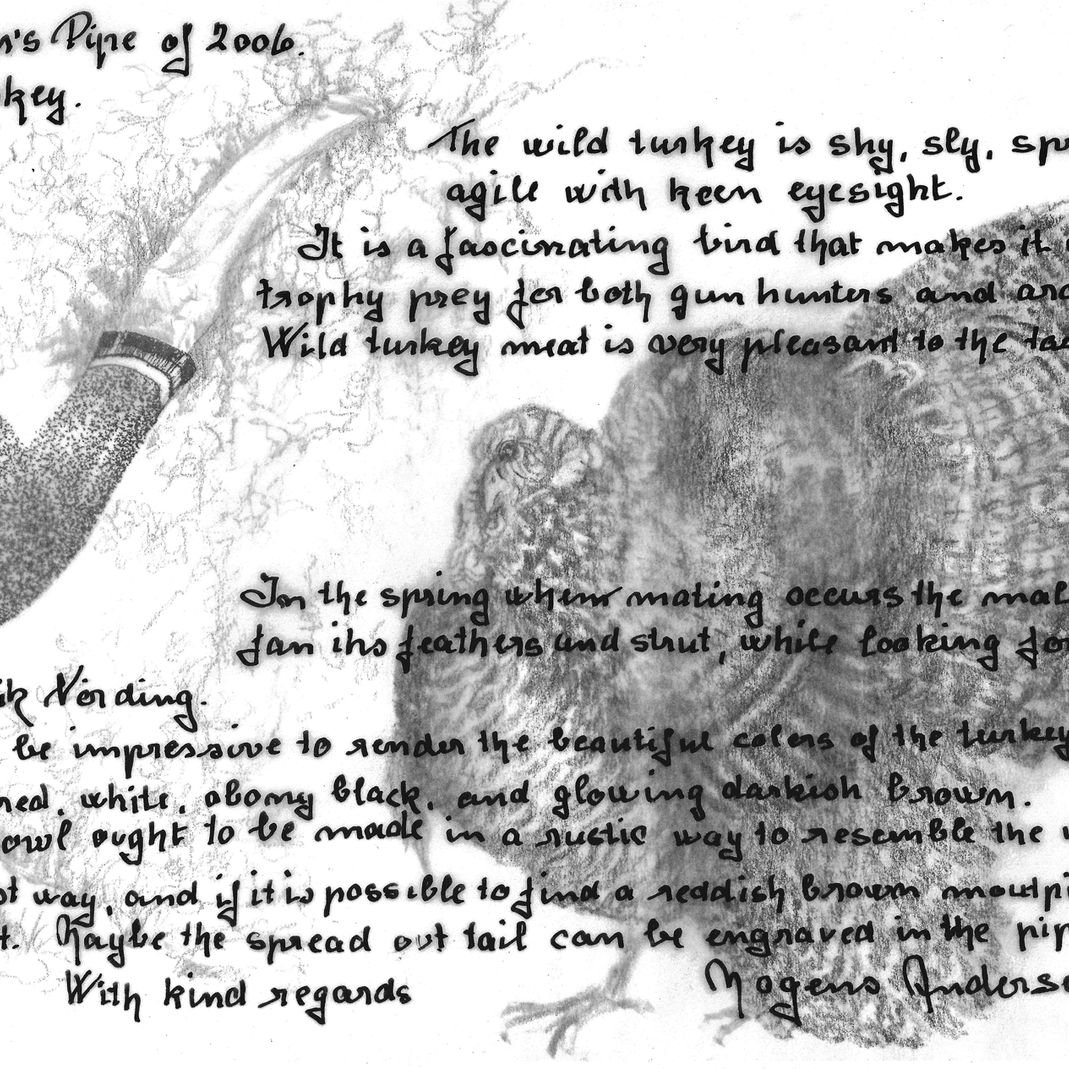 n's Pipe of 2006.
key.
The wild turkey is shy, sly, sp
agile with keen eyesight.
It is a fascinating bird that makes it
trophy prey for both gun hunters and arc
Wild turkey meat is very pleasant to the ta
In the spring when mating occurs the mal
fan ihs feathers and strut, while looking for
ik Nørding.
be impressive to render the beautiful colors of the turkey
red, white, obony black, and glowing darkish brown.
owl ought to be made in a rustic way to resemble the
ot way, and if it is possible to find a reddish brown moutpi
t. Maybe the spread out tail can be engraved in the pip
With kind regards
Mogens Anderse